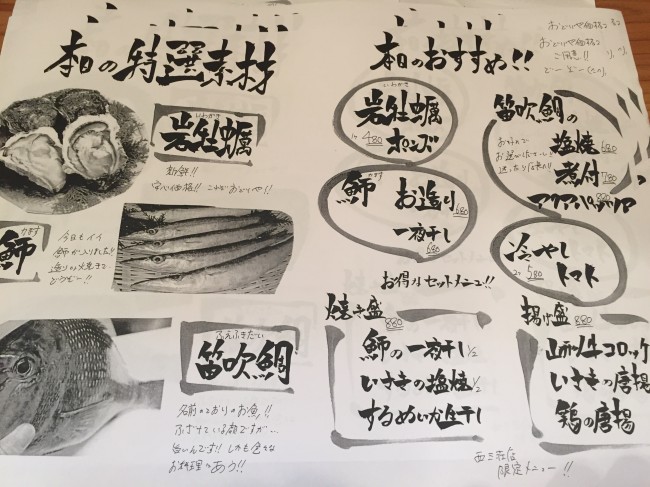 本日の特選素材
いわがき
岩牡蠣
新鮮!!
安心価格!! これがおどりや!!
かます
魳
今日もイイ
魳が入りました!!
造りや焼きで
どうぞー!!
ふえふきだい
笛吹鯛
名前のとおりのお魚!!
ふざけている顔ですが…
旨いんです!! しかも色々な
お料理にあう!!
本日のおすすめ!!
おどりや価格で
ご用意!!
どーぞー
いわがき
岩牡蠣
1ヶ 480
ポンズ
魳 かます
お造り 680
一夜干し 680
笛吹鯛の
お好みで
お選びください
塩焼 680
煮付 780
アクアパッツァ
冷やし
トマト
380
お得なセットメニュー!!
焼き盛 880
魳の一夜干し1/2
いさきの塩焼1/2
するめいか生干し
揚げ盛 880
コロッケ
いさきの唐揚
鶏の唐揚
西三荘店
限定メニュー!!